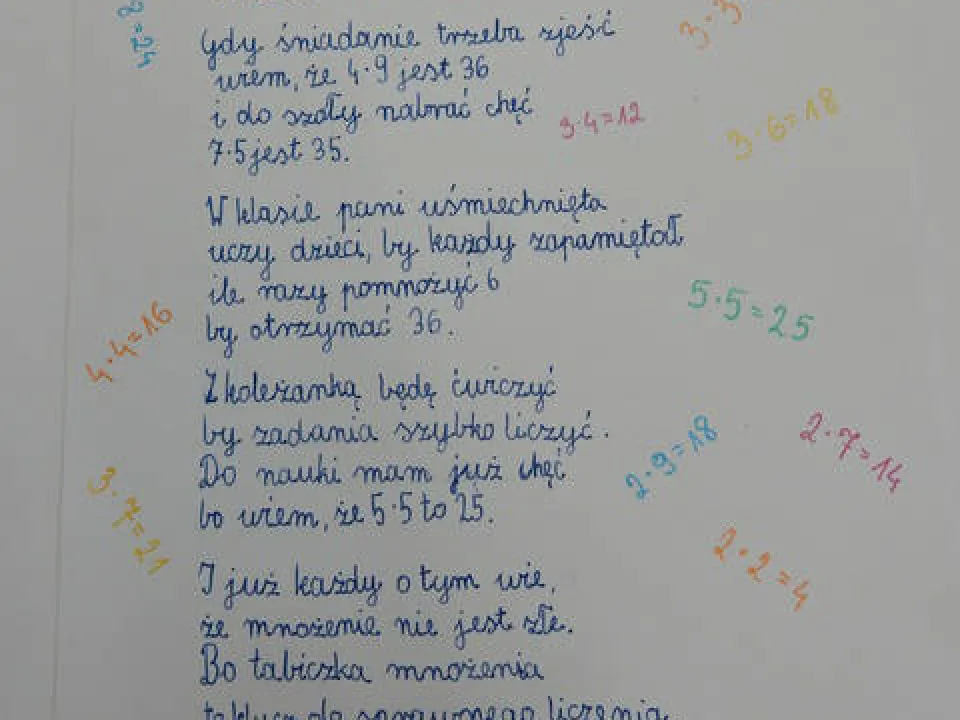 8=24
3·3
Gdy śniadanie trzeba zjeść
wiem, że 4·9 jest 36
i do szoły nabrać chęć
7·5 jest 35.
3·4=12
3·6=18
W klasie pani uśmiechnięta
uczy dzieci, by każdy zapamiętał
ile razy pomnożyć 6
by otrzymać 36.
5·5=25
4·4=16
Z koleżanką będę ćwiczyć
by zadania szybko liczyć.
Do nauki mam już chęć
bo wiem, że 5·5 to 25.
2·9=18
2·7=14
3·7=21
2·2=4
I już każdy o tym wie,
że mnożenie nie jest złe.
Bo tabiczka mnożenia
to klucz do sprawnego liczenia.